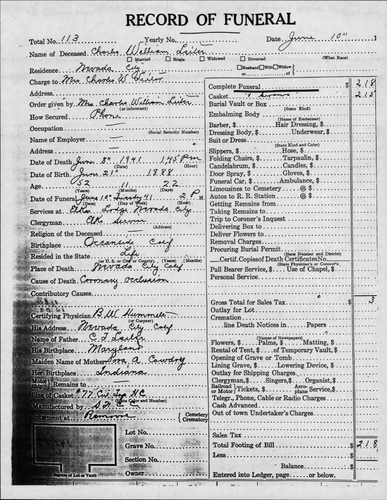 RECORD OF FUNERAL
Total No. 113 Yearly No. Date June 10"
Name of Deceased Charles William
Married Single Widowed Divorced (What Race)
Residence Nevada City Husband Wife Widow or
Charge to Mrs Charles W.
Address
Order given by Mrs. Charles William
(or informant)
How Secured Phone
Occupation
(Social Security Number)
Name of Employer
Address
Date of Death June 8th 1941 1:45 P.m.
Date of Birth June 21st 1888
Age 52 22
(Years) (Months) (Days)
Date of Funeral June 10th 41 2 P.M.
(Date) (Day) (Hour)
Services at Elks Lodge Nevada City
Clergyman Elks
(Address)
Religion of the Deceased
Birthplace Oceanside Calif
Resided in the State Life
(U. S. or City or County) (Years) (Months)
Place of Death Nevada City Calif
Cause of Death Coronary Occlusion
Contributory Causes
Certifying Physician B.W. Hummelt
His Address Nevada City Calif
Name of Father
His Birthplace Maryland
Maiden Name of Mother A.
Her Birthplace Indiana
Motor
Remains to
Size of Casket
(State Color and Number)
Manufactured by
Interment at
Cemetery
Crematory
Lot No.
Grave No.
Section No.
Owner
Diagram of Lot or Vault
Complete Funeral 218
Casket 215
Burial Vault or Box
(State Kind)
Embalming Body
(Name of Embalmer)
Barber, $ Hair Dressing, $
Dressing Body, $ Underwear, $
Suit or Dress
(State Kind and Color)
Slippers, $ Hose, $
Folding Chairs, $ Tarpaulin, $
Candelabrum, $ Candles, $
Door Spray, $ Gloves, $
Funeral Car, $ Ambulance, $
Limousines to Cemetery @ $
Autos to R. R. Station @ $
Getting Remains from
Taking Remains to
Trip to Coroner's Inquest
Delivering Box to
Deliver Flowers to
Removal Charges
Procuring Burial Permit
(State Number and District)
Certif. Copies of Death Certificates No.
(State Physician's or Coroner's)
Pall Bearer Service, $ Use of Chapel, $
Personal Service
Gross Total for Sales Tax $ 3
Outlay for Lot
Cremation
line Death Notices in Papers
(Names of Newspapers)
Flowers, $ Palms, $ Matting, $
Rental of Tent, $ of Temporary Vault, $
Opening of Grave or Tomb
Lining Grave, $ Lowering Device, $
Outlay for Shipping Charges
Clergyman, $ Singers, $ Organist, $
Railroad or Motor Tickets, $ Aeroplane Service, $
Telegr., Phone, Cable or Radio Charges
Cash Advanced
Out of town Undertaker's Charges
Sales Tax
Total Footing of Bill $ 218
Less
Balance $
Entered into Ledger, page or below.